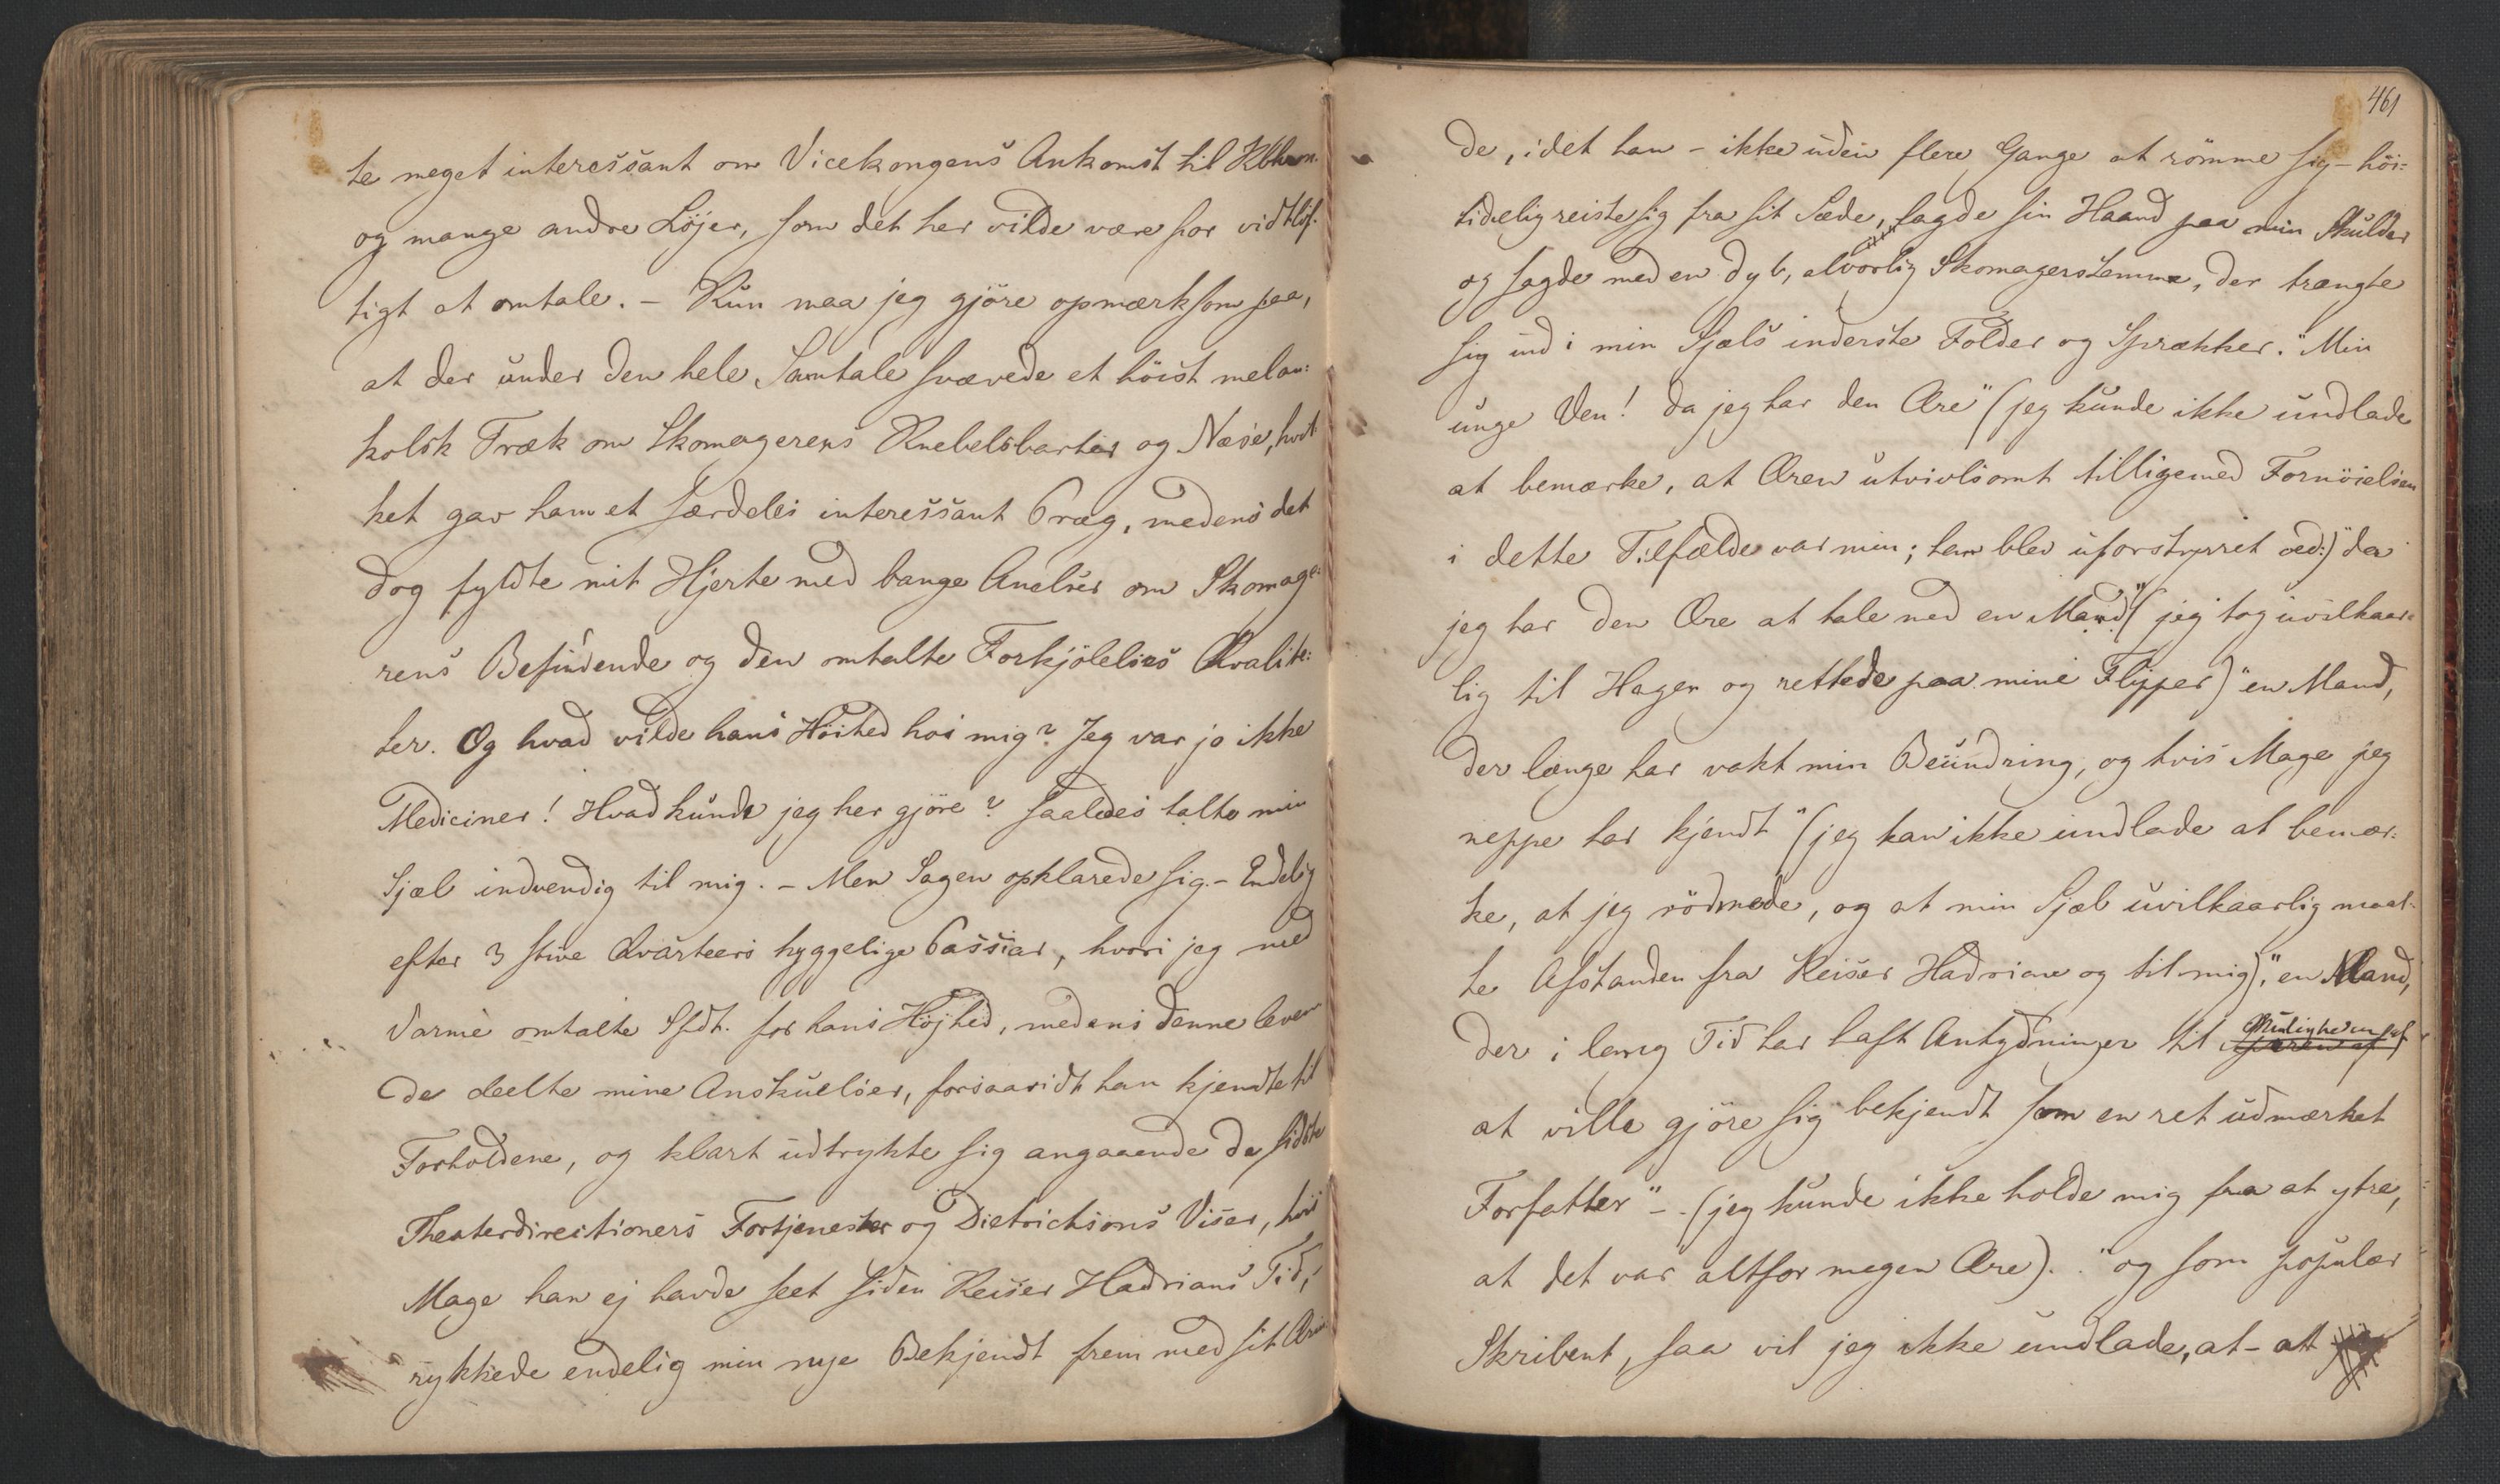 te meget interessant om Vicekongens Ankomst til Kbhvn.
og mange andre Löjer, som det her vilde være for vidtlöf-
tigt at omtale. - Kun maa jeg gjöre opmærksom paa,
at der under den hele Samtale svævede et höist melan:
kolsk Træk om Skomagerens Knebelsbarter og Næse, hvil
ket gav ham et særdeles interessant Præg, medens det
dog fyldte mit Hjerte med bange Anelser om Skomage:
rens Befindende og den omtalte Forkjölelses Qvalite:
ter. Og hvad vilde hans Höihed hos mig? Jeg var jo ikke
Mediciner! Hvad kunde jeg her gjöre? Saaledes talte min
Sjæl indvendig til mig. - Men Sagen opklarede sig. - Endelig
efter 3 stive Qvarteers hyggelige Passiar, hvori jeg med
Varme omtalte Sfdt. for hans Höjhed, medens denne leven
de deelte mine Anskuelser, forsaavidt han kjendte til
Forholdene, og klart udtrykte sig angaaende de sidste
Theaterdirectioners Fortjenester og Dietrichsons Viser, hvis
Mage han ej havde seet siden Keiser Hadrians Tid,
rykkede endelig min nye Bekjendt frem med sit Ærin
461
de, idet han - ikke uden flere Gange at römme sig - höi:
tidelig reiste sig fra sit Sæde, lagde sin Haand paa min Skulder
og sagde med en dyb, alvorlig Skomagerstemme, der trængte
sig ind i min Sjæls inderste Folder og Sprækker. "Min
unge Ven! da jeg har den Ære" (jeg kunde ikke undlade
at bemærke, at Æren utvivlsomt tilligemed Fornöielsen
i dette Tilfælde var min; han blev uforstyrret ved:) "da
jeg har den Ære at tale med en Mand" (jeg tog uvilkaar:
lig til Hagen og rettede paa mine Flipper) "en Mand,
der længe har vakt min Beundring, og hvis Mage jeg
neppe har kjendt" (jeg kan ikke undlade at bemær:
ke, at jeg rödmede, og at min Sjæl uvilkaarlig maal-
te Afstanden fra Keiser Hadrian og til mig), "en Mand,
der i lang Tid har haft Antydninger til Muligheden af
at ville gjöre sig bekjendt som en ret udmærket
Forfatter" - (jeg kunde ikke holde mig fra at ytre,
at det var altfor megen Ære). "og som populær
Skribent, saa vil jeg ikke undlade, at - at